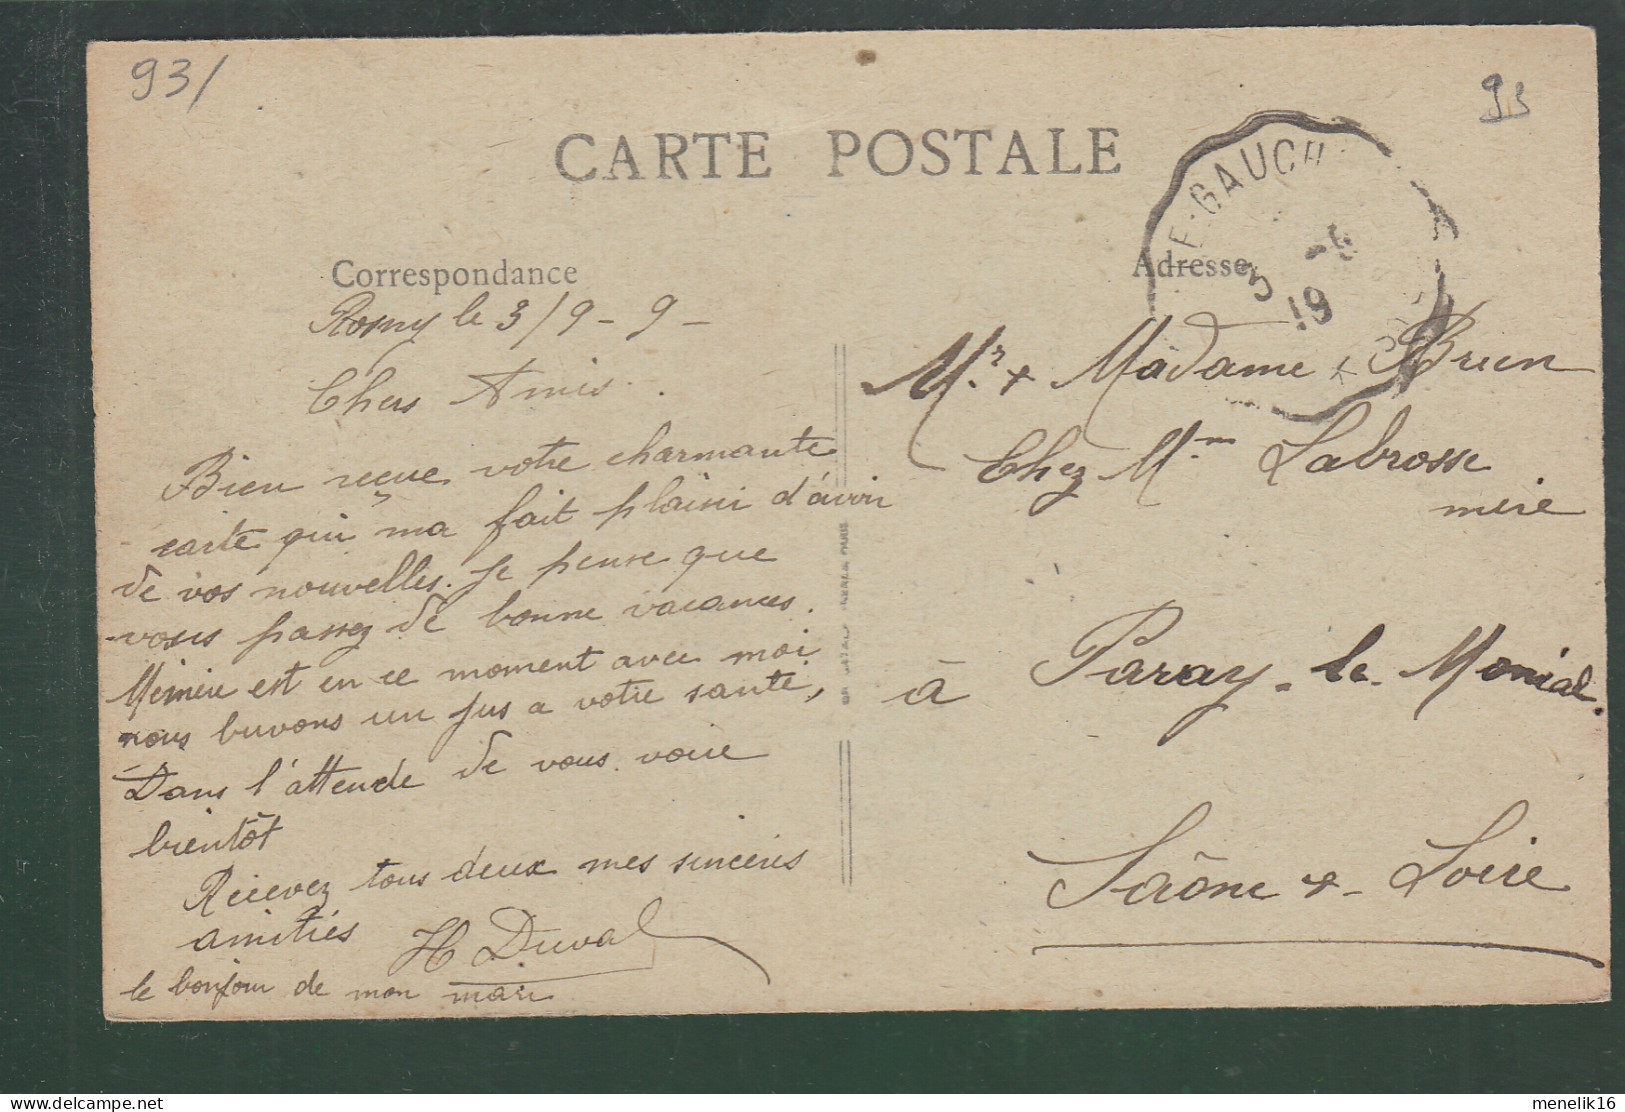 93/
93
CARTE POSTALE
E. GAUCH
19
Correspondance
Adresse
Rosny le 3/9-9-
Chers Amis.
Bien reçue votre charmante
carte qui ma fait plaisir d'avoir
de vos nouvelles. je pense que
vous passez de bonne vacances.
Mémère est en ce moment avec moi
nous buvons un jus a votre santé,
Dans l'attende de vous voire
bientôt
Recevez tous deux mes sincères
amitiés H Duval
le bonjour de mon mari
Mr & Madame Brun
Chez Mm Labrosse
mère
à Paray-le-Monial.
Saône &-Loire
menelik16